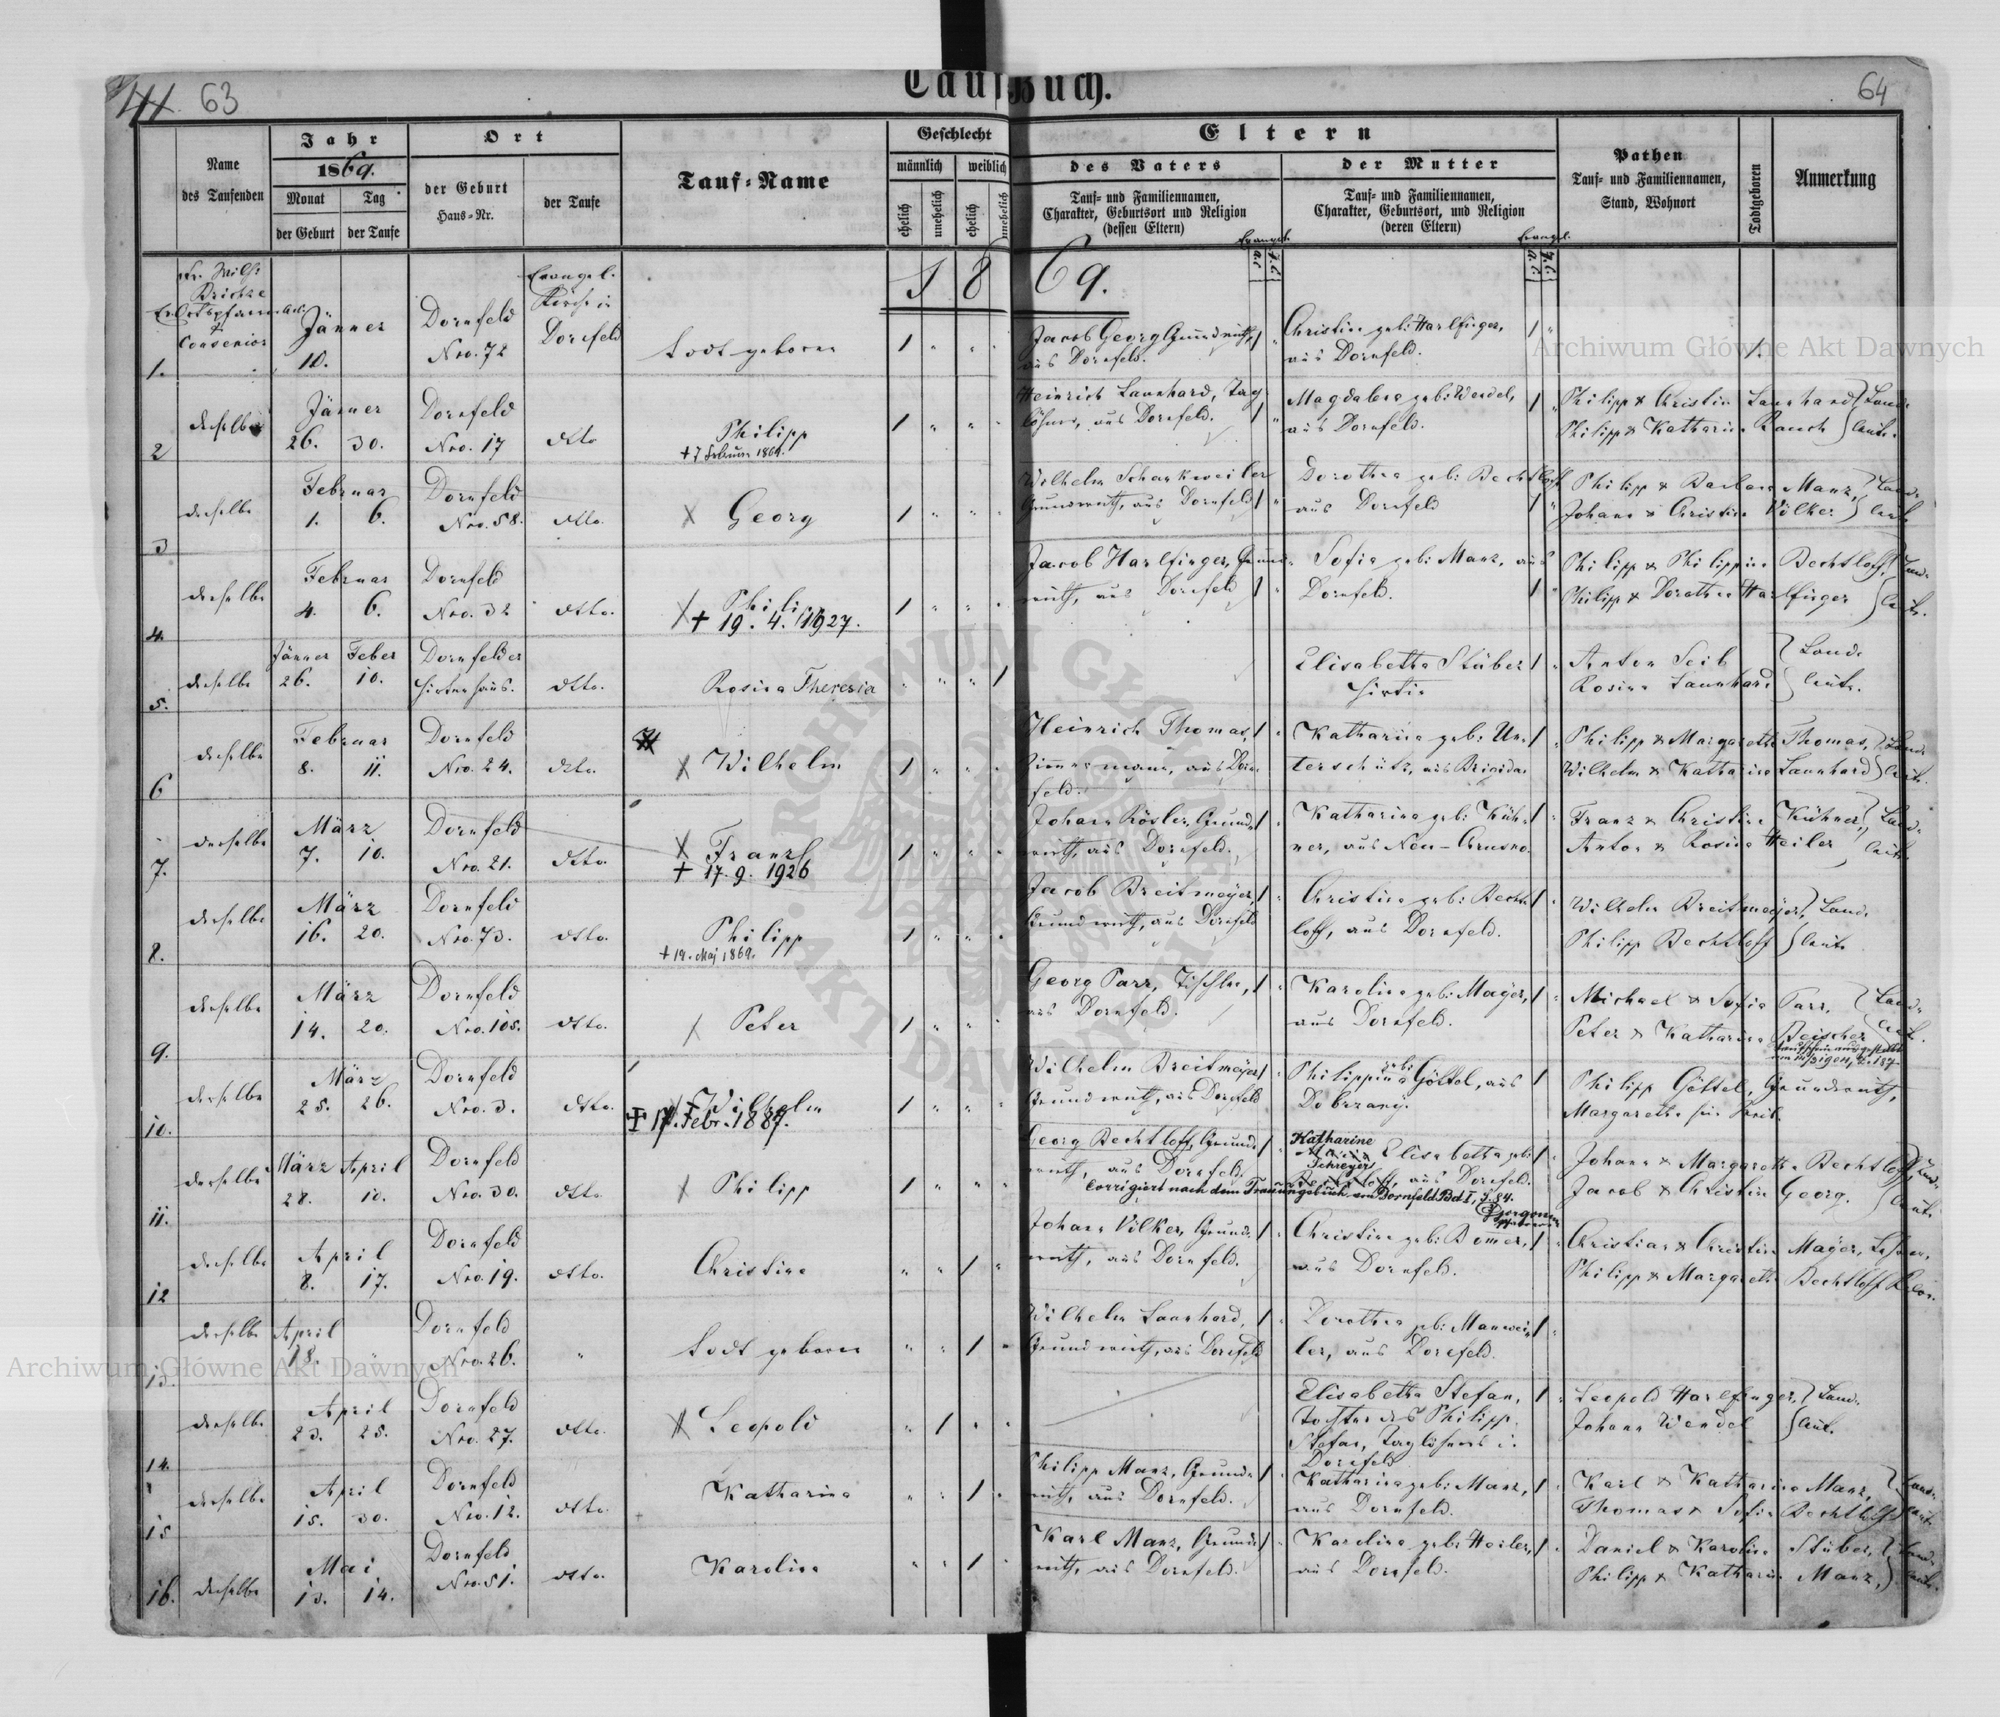 41. 63
Tauf-Buch.
64
Name
des Taufenden
Jahr
1869.
Monat
Tag
der Geburt
der Taufe
Ort
der Geburt
Haus-Nr.
der Taufe
Tauf-Name
Geschlecht
männlich
weiblich
ehelich
unehelich
ehelich
unehelich
Eltern
des Vaters
Tauf- und Familiennamen,
Charakter, Geburtsort und Religion
(dessen Eltern)
Evangel.
der Mutter
Tauf- und Familiennamen,
Charakter, Geburtsort, und Religion
(deren Eltern)
Evangel.
Pathen
Tauf- und Familiennamen,
Stand, Wohnort
Todtgeboren
Anmerkung
1869.
Consenior
Evangel.
Kirche in
Dornfeld
1. Jänner 10. Dornfeld Nro. 72 Todt geboren 1
Jacob Georg Grundwirth, aus Dornfeld. 1
Christine geb: Harlfinger, aus Dornfeld. 1
2 derselbe Jänner 26. 30. Dornfeld Nro. 17 dtto Philipp 1
+ 7 Februar 1869.
Heinrich Lannhard, Taglöhner, aus Dornfeld. 1
Magdalena geb: Wendel, aus Dornfeld. 1
Philipp & Christine Lannhard
Philipp & Katharine Rauch } Landleute.
3 derselbe Februar 1. 6. Dornfeld Nro. 58. dtto. Georg 1
Wilhelm Schankweiler Grundwirth, aus Dornfeld 1
Dorothea geb: Bechtloff aus Dornfeld 1
Philipp & Barbara Manz,
Johann & Christine Völker } Landleute
4. derselbe Februar 4. 6. Dornfeld Nro. 32 dtto. Philipp 1
+ 19. 4. 1927.
Jacob Harlfinger, Grundwirth, aus Dornfeld 1
Sofia geb: Manz, aus Dornfeld. 1
Philipp & Philippine Bechtloff,
Philipp & Dorothea Harlfinger } Landleute.
5. derselbe Jänner 26. Feber 10. Dornfelder Hirtenhaus. dtto. Rosina Theresia 1
Elisabetha Stüber Hirtin 1
Anton Seib
Rosina Lannhard } Landleute.
6 derselbe Februar 8. 11. Dornfeld Nro. 24. dtto. Wilhelm 1
Heinrich Thomas, Zimmermann, aus Dornfeld. 1
Katharine geb: Unterschütz, aus Brigidau 1
Philipp & Margaretha Thomas,
Wilhelm & Katharine Lannhard } Landleute.
7. derselbe März 7. 10. Dornfeld Nro. 21. dtto. Franz 1
+ 17. 9. 1926
Johann Rösler, Grundwirth, aus Dornfeld. 1
Katharina geb: Kühner, aus Neu-Chrusno. 1
Franz & Christine Kühner,
Anton & Rosina Heiler } Landleute.
8. derselbe März 16. 20. Dornfeld Nro. 73. dtto. Philipp 1
+ 19. Maj 1869.
Jacob Breitmeyer, Grundwirth, aus Dornfeld 1
Christine geb: Bechtloff, aus Dornfeld. 1
Wilhelm Breitmeyer,
Philipp Bechtloff } Landleute
9. derselbe März 14. 20. Dornfeld Nro. 105. dtto. Peter 1
Georg Parr, Tischler, aus Dornfeld. 1
Karoline geb: Mayer, aus Dornfeld. 1
Michael & Sofia Parr,
Peter & Katharina Reischer } Landleute.
10. derselbe März 25. 26. Dornfeld Nro. 3. dtto. Wilhelm 1
+ 17. Febr. 1887.
Wilhelm Breitmeyer Grundwirth, aus Dornfeld 1
Philippina geb: Göttel, aus Dobrzany. 1
Philipp Göttel, Grundwirth,
Margaretha sein Weib.
11. derselbe März 28. April 10. Dornfeld Nro. 30. dtto Philipp 1
Georg Bechtloff, Grundwirth, aus Dornfeld. 1
Katharine Elisabetha geb: Schreyer, aus Dornfeld. 1
Corrigiert nach dem Trauungsbuch von Dornfeld Bd. I, S. 84.
Johann & Margaretha Bechtloff,
Jacob & Christine Georg. } Landleute
12 derselbe April 8. 17. Dornfeld Nro. 19. dtto. Christine 1
Johann Völker, Grundwirth, aus Dornfeld. 1
Christine geb: Bommer, aus Dornfeld. 1
Christian & Christine Mayer, Lehrer,
Philipp & Margaretha Bechtloff
13. derselbe April 18. Dornfeld Nro. 26. Todt geboren 1
Wilhelm Lannhard, Grundwirth, aus Dornfeld 1
Dorothea geb: Manweiler, aus Dornfeld. 1
14. derselbe April 23. 25. Dornfeld Nro. 27. dtto. Leopold 1
Elisabetha Stefan, Tochter des Philipp Stefan, Taglöhners in Dornfeld 1
Leopold Harlfinger,
Johann Wendel } Landleute.
15 derselbe April 15. 30. Dornfeld Nro. 12. dtto. Katharina 1
Philipp Manz, Grundwirth, aus Dornfeld. 1
Katharina geb: Manz, aus Dornfeld. 1
Karl & Katharina Manz,
Thomas & Sofia Bechtloff } Landleute
16. derselbe Mai 13. 14. Dornfeld Nro. 51. dtto. Karoline 1
Karl Manz, Grundwirth, aus Dornfeld. 1
Karoline geb: Heiler, aus Dornfeld. 1
Daniel & Karoline Stüber,
Philipp & Katharina Manz, } Landleute.
Archiwum Główne Akt Dawnych
Archiwum Główne Akt Dawnych
ARCHIWUM GŁÓWNE AKT DAWNYCH